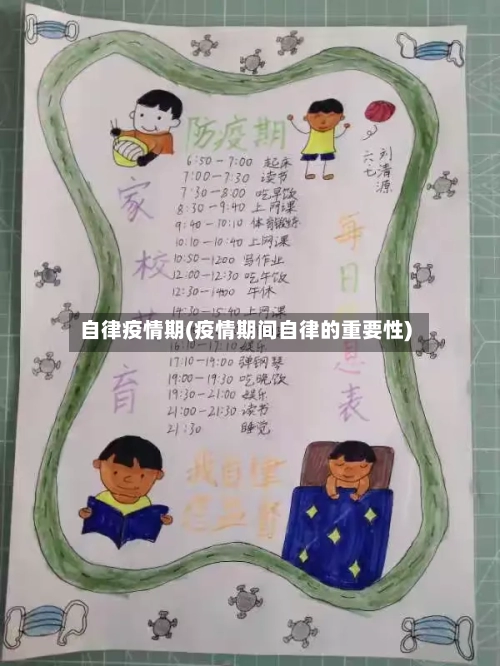 防疫期
刘清源
六七
6:50-7:00 起床
7:00-7:30 读书
7:30-8:00 吃早饭
8:30-9:40 上网课
9:40-10:10 体育锻炼
10:10-10:40 上网课
10:50-1200 写作业
12:00-12:30 吃午饭
12:30-1400 午休
14:30-15:40 上网课
自律疫情期(疫情期间自律的重要性)
16:10-17:10 娱乐
17:10-19:00 弹钢琴
19:00-19:30 吃晚饭
19:30-21:00 娱乐
21:00-21:30 读书
21:30 睡觉
家校
育
每日
息表
我自律